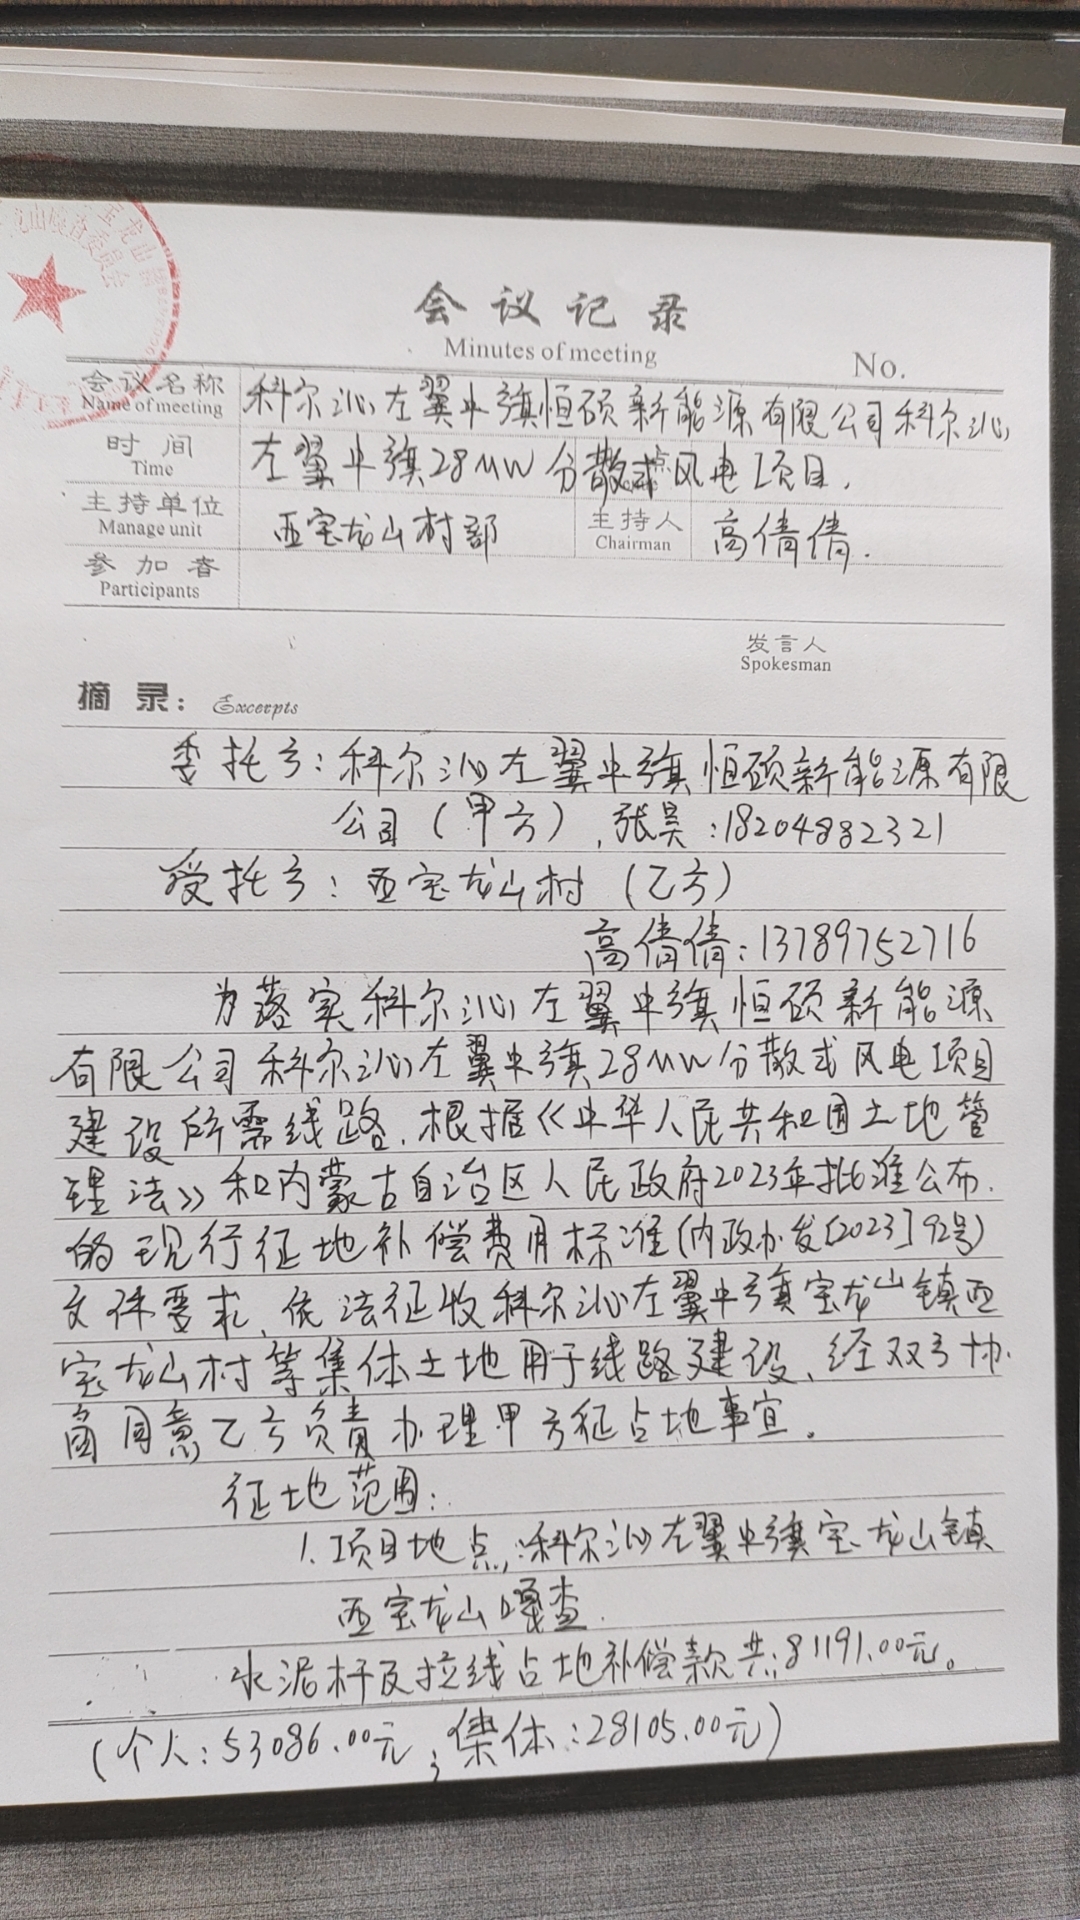 会议记录
Minutes of meeting
No.
会议名称 科尔沁左翼中旗恒硕新能源有限公司科尔沁
Name of meeting
时间 左翼中旗28MW分散式风电项目.
Time
主持单位 西宝龙山村部 主持人 高倩倩.
Manage unit Chairman
参加者
Participants
发言人
Spokesman
摘录: Excerpts
委托方:科尔沁左翼中旗恒硕新能源有限
公司(甲方),张昊:18204882321
受托方:西宝龙山村(乙方)
高倩倩:13789752716
为落实科尔沁左翼中旗恒硕新能源
有限公司科尔沁左翼中旗28MW分散式风电项目
建设所需线路.根据《中华人民共和国土地管
理法》和内蒙古自治区人民政府2023年批准公布.
的现行征地补偿费用标准(内政办发[2023]92号)
文件要求、依法征收科尔沁左翼中旗宝龙山镇西
宝龙山村等集体土地用于线路建设、经双方协.
商同意乙方负责办理甲方征占地事宜.
征地范围:
1.项目地点:科尔沁左翼中旗宝龙山镇
西宝龙山嘎查.
水泥杆及拉线占地补偿款共:81191.00元。
(个人:53086.00元;集体:28105.00元)